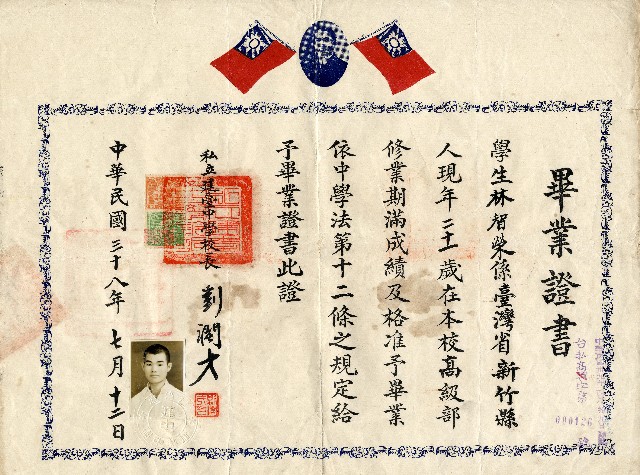 畢業證書
學生林智榮係臺灣省新竹縣
人現年二十一歲在本校高級部
修業期滿成績及格准予畢業
依中學法第十二條之規定給
予畢業證書此證
私立建臺中學校長 劉潤才
中華民國三十八年 七月 十二日